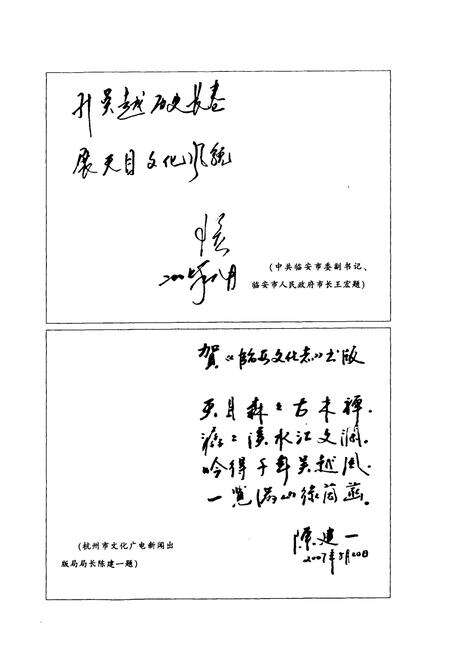 升吴越历史长卷
展天目文化
二〇〇七年八月
(中共临安市委副书记、
临安市人民政府市长王宏题)
贺《临安文化志》出版
天目森森古木禅。
溪水江文澜。
吟得千年吴越风。
一览满山绿
陈建一
2007年8月20日
(杭州市文化广电新闻出
版局局长陈建一题)